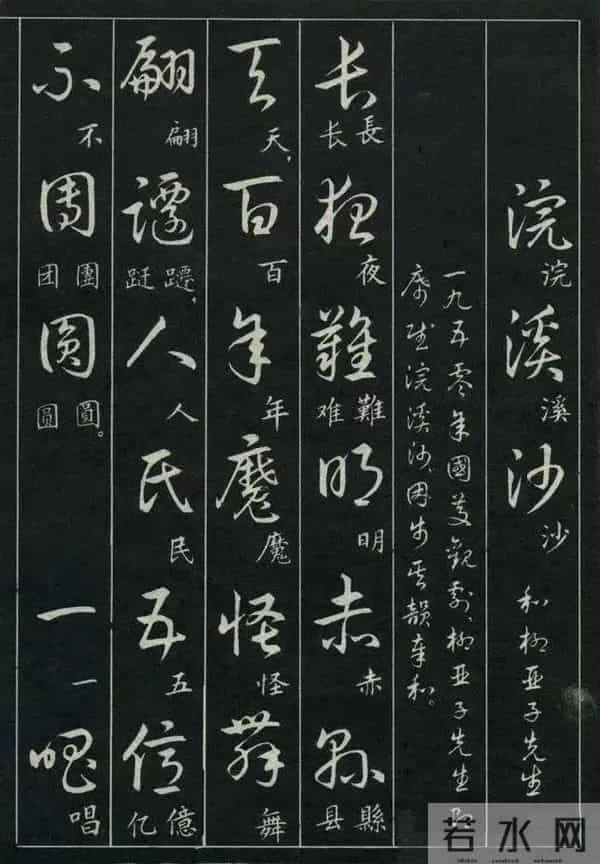 浣溪沙 和柳亚子先生
浣溪沙
一九五零年國慶觀劇,柳亚子先生即
席賦浣溪沙,因步其韻奉和。
長夜難明赤縣
長夜難明赤縣
长难县
天百年魔怪舞
天,百年魔怪舞
翩躚人民五億
翩躚,人民五億
跹亿
不團圓 一唱
不團圓。一唱
团圓
若水网